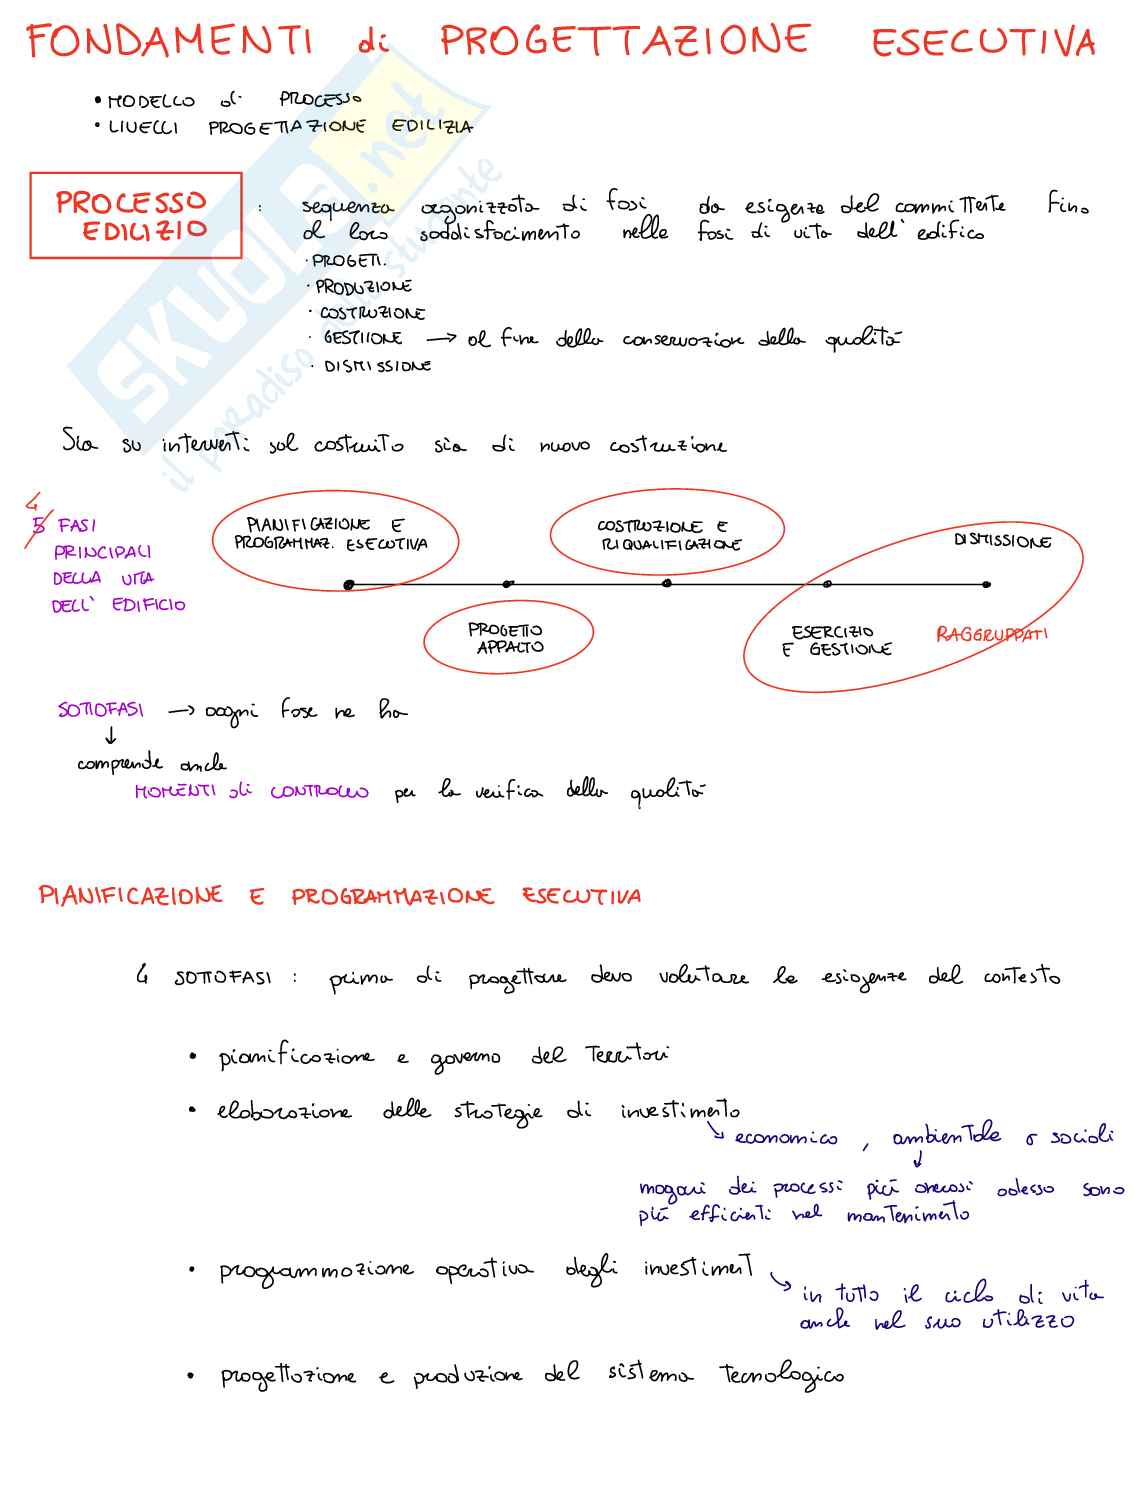 FONDAMENTI di PROGETTAZIONE ESECUTIVA
• MODELLO di PROCESSO
• LIVELLI PROGETTAZIONE EDILIZIA
PROCESSO
EDILIZIO
: sequenza organizzata di fasi da esigenze del committente fino
al loro soddisfacimento nelle fasi di vita dell' edifico
· PROGETT.
· PRODUZIONE
· COSTRUZIONE
· GESTIONE → al fine della conservazion della qualità
· DISMISSIONE
Sia su interventi sul costruito sia di nuovo costruzione
4
5 FASI
PRINCIPALI
DELLA VITA
DELL' EDIFICIO
PIANIFICAZIONE E
PROGRAMMAZ. ESECUTIVA
COSTRUZIONE E
RIQUALIFICAZIONE
DISMISSIONE
PROGETTO
APPALTO
ESERCIZIO
E GESTIONE
RAGGRUPPATI
SOTTOFASI → oogni fase ne ha
↓
comprende anche
MOMENTI di CONTROLLO per la verifica della qualità
PIANIFICAZIONE E PROGRAMMAZIONE ESECUTIVA
4 SOTTOFASI : prima di progettare devo valutare le esigenze del contesto
• pianificazione e governo del territori
• elaborazione delle strategie di investimento
↘ economico, ambientale o sociali
↓
magari dei processi più onerosi adesso sono
più efficienti nel mantenimento
• programmazione operativa degli investiment
↘ in tutto il ciclo di vita
anche nel suo utilizzo
• progettazione e produzione del sistema tecnologico
SKUOLA.net
il paradiso dello studente